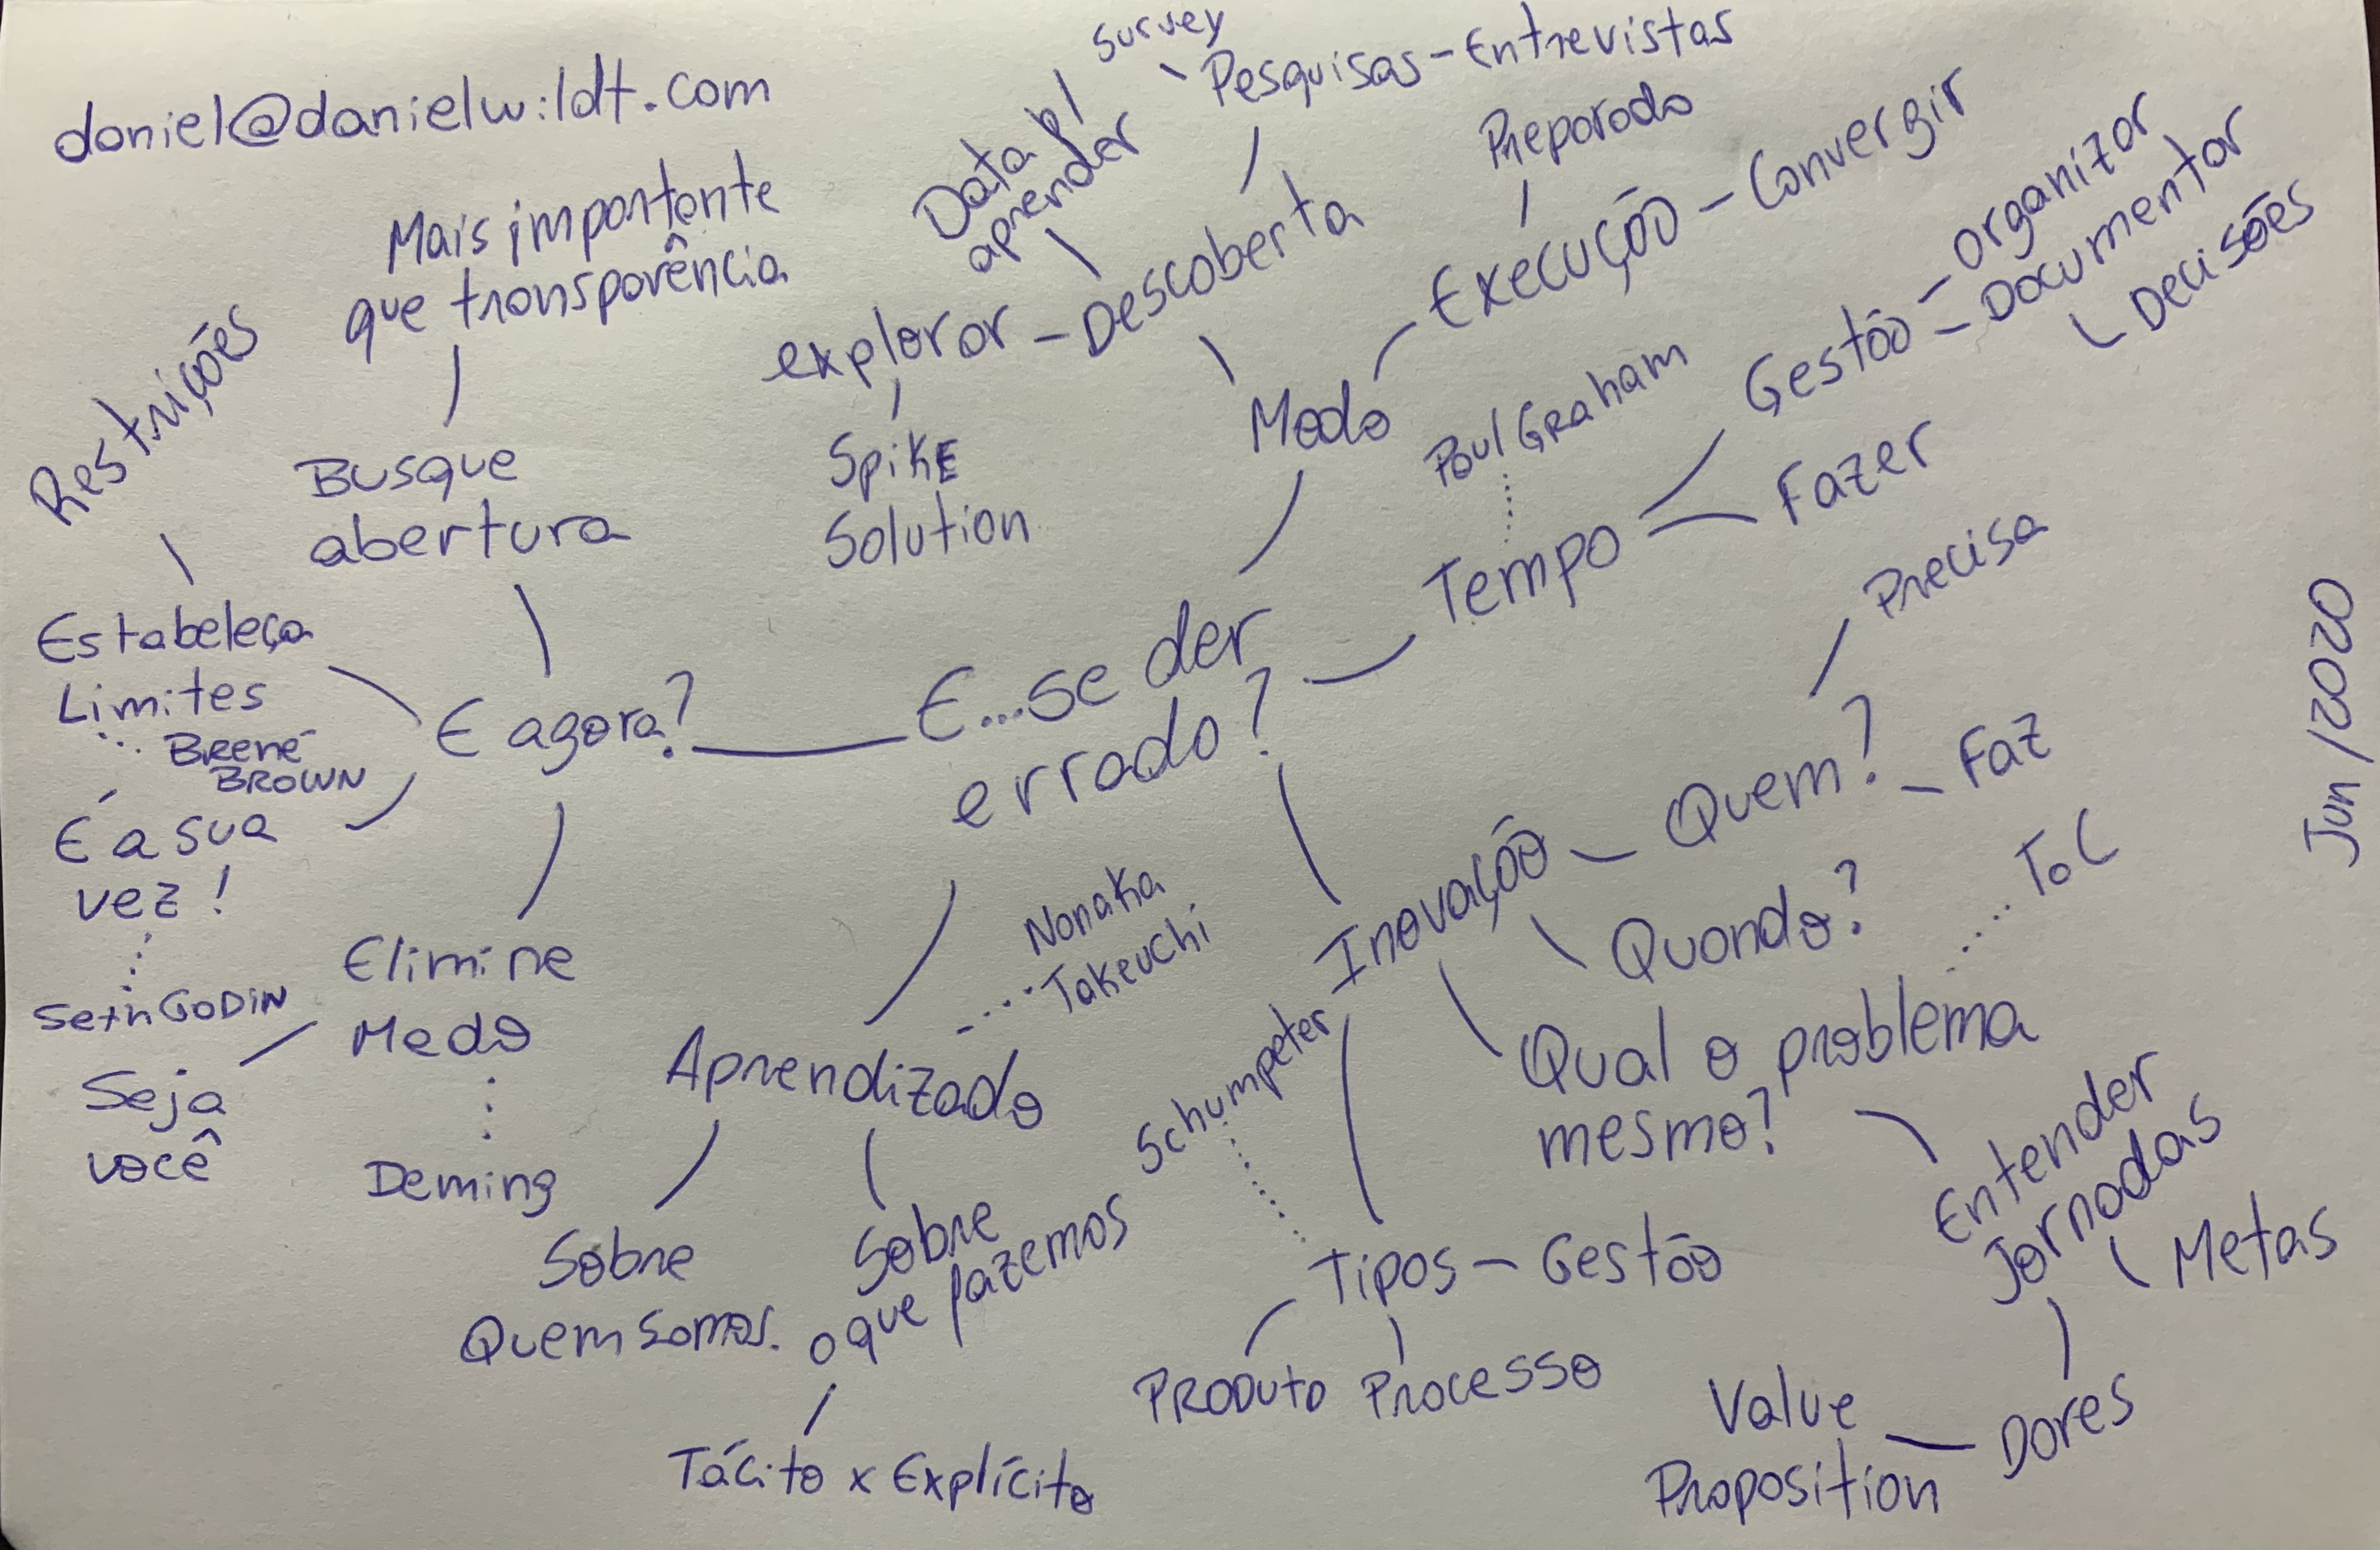 daniel@danielwildt.com
Mais importante
que transparência
Restrições
Busque
abertura
Estabeleça
Limites
Brené
BROWN
É a sua
vez!
Seth GODIN
Seja
você
Elimine
Medo
Deming
E agora?
E...se der
errado?
survey
Pesquisas - Entrevistas
Data p/
aprender
explorar - Descoberta
Spike
Solution
Modo
Preparado
Execução - Convergir
Paul Graham
Tempo
Gestão
organizar
Documentar
Decisões
Fazer
Precisa
Inovação - Quem?
Faz
Quando?
ToC
Qual o problema
mesmo?
Entender
Jornadas
Metas
Dores
Value
Proposition
Schumpeter
Tipos - Gestão
PRODUTO
Processo
Nonaka
Takeuchi
Aprendizado
Sobre
Quem somos.
Sobre
o que fazemos
Tácito x Explícito
Jun/2020